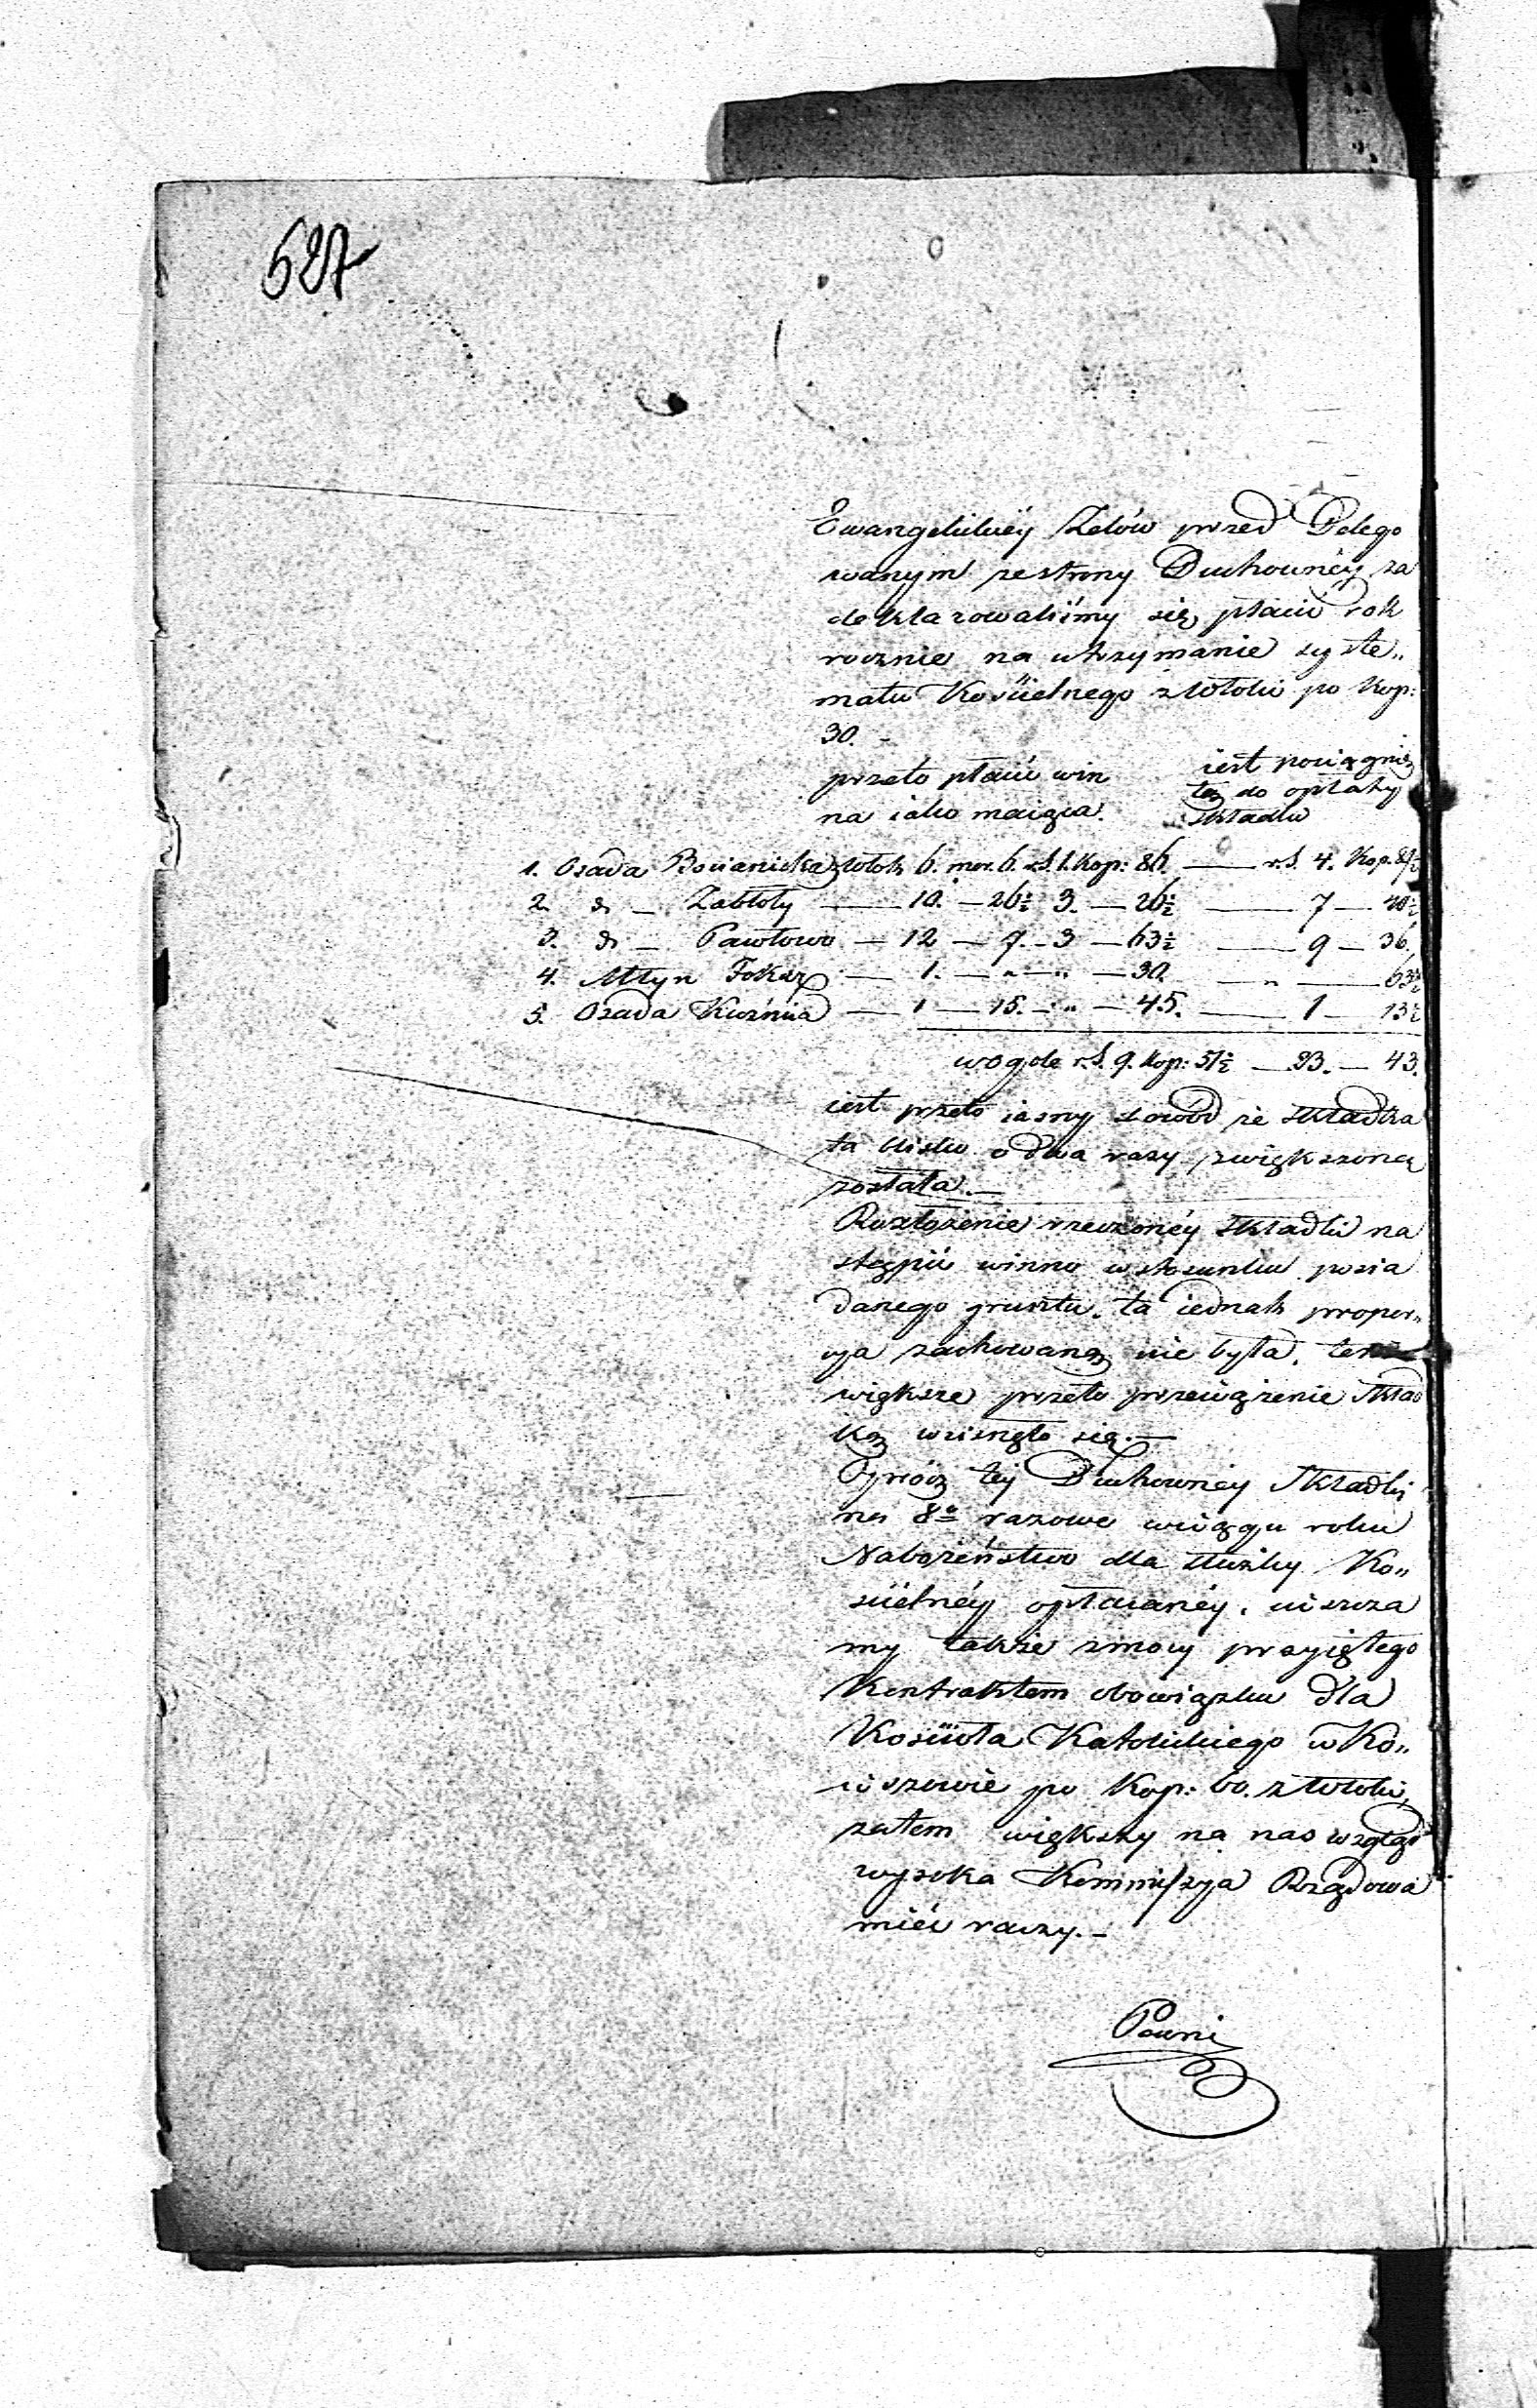 527
Ewangelickiéy Zelów przed Delego
wanym ze strony Duchownéy za
deklarowaliśmy się płacić rok
rocznie na utrzymanie syste„
matu Kościelnego z włoki po Kop:
30. –
przeto płacić win
na iako maiąca.
iest pociągnię
tą do opłaty
składki
1. Osada Bocianicha z włok 6. mor. 6. rS. 1. Kop: 86. — r.S. 4. Kop. 81½
2. do — Zabłoty — 10. — 26½ 3. — 26½ — 7 — 
3. do — Pawłowo — 12 — 7. – 3 — 63½ — 9 — 36.
4. Młyn Tokarz — 1. — „ — „ — 30. — „ — 63½
5. Osada Kuźnia — 1 — 15. — „ — 45. — 1 — 13½
wogóle r.S. 9. Kop: 51½ — 23. — 43.
iest przeto iasny dowód że składka
ta blisko o dwa razy zwiększoną
została. —
Rozłożenie rzeczonéy składki na
stąpić winno w stosunku posia
danego gruntu. ta iednak propor„
cya zachowaną nie była,
większe przeto przeciążenie skład
ką wcisnęło się. —
Oprócz téj Duchownéy składki
na 8o razowe w ciągu roku
Nabożeństwo dla służby Ko„
ściełnéy opłacanéy, uiszcza
my także z mocy przyiętego
Kontraktem obowiązku dla
Kościoła Katolickiego w Ko„
ciszewie po Kop: 60. z włoki,
zatem większy na nas wzgląd
wysoka Kommissya Rządowa
mieć raczy. –
Pewni